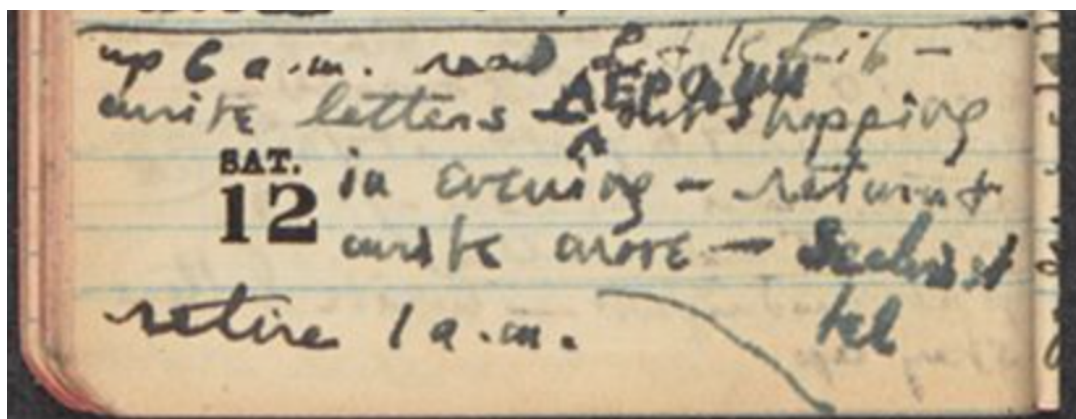 up 6 a.m. read
write letters — out shopping
SAT.
12
in evening — return &
write more —
retire 1 a.m. tel